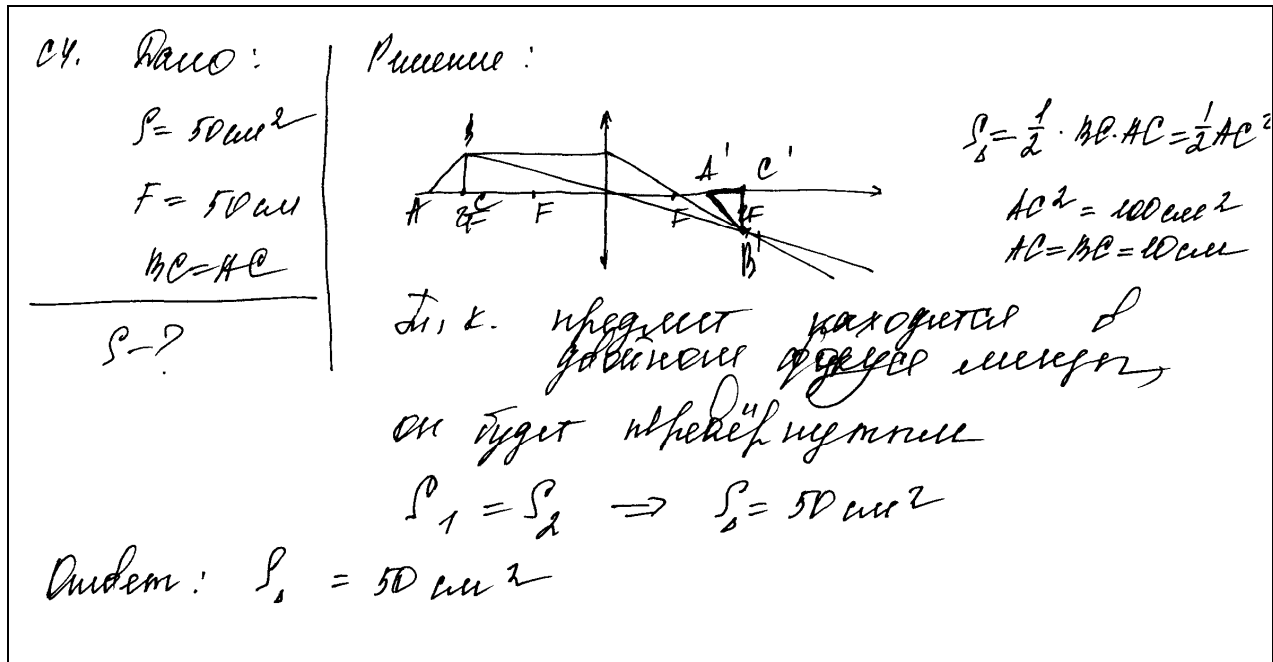 С4. Дано:
S = 50 см²
F = 50 см
BC = AC
S – ?
Решение:
B
A 2F C F F 2F
A' C'
B'
S△ = 1/2 · BC · AC = 1/2 AC²
AC² = 100 см²
AC = BC = 10 см
Т, к. предмет находится в
двойном фокусе линзы,
он будет перевёрнутым
S₁ = S₂ ⇒ S△ = 50 см²
Ответ: S△ = 50 см²